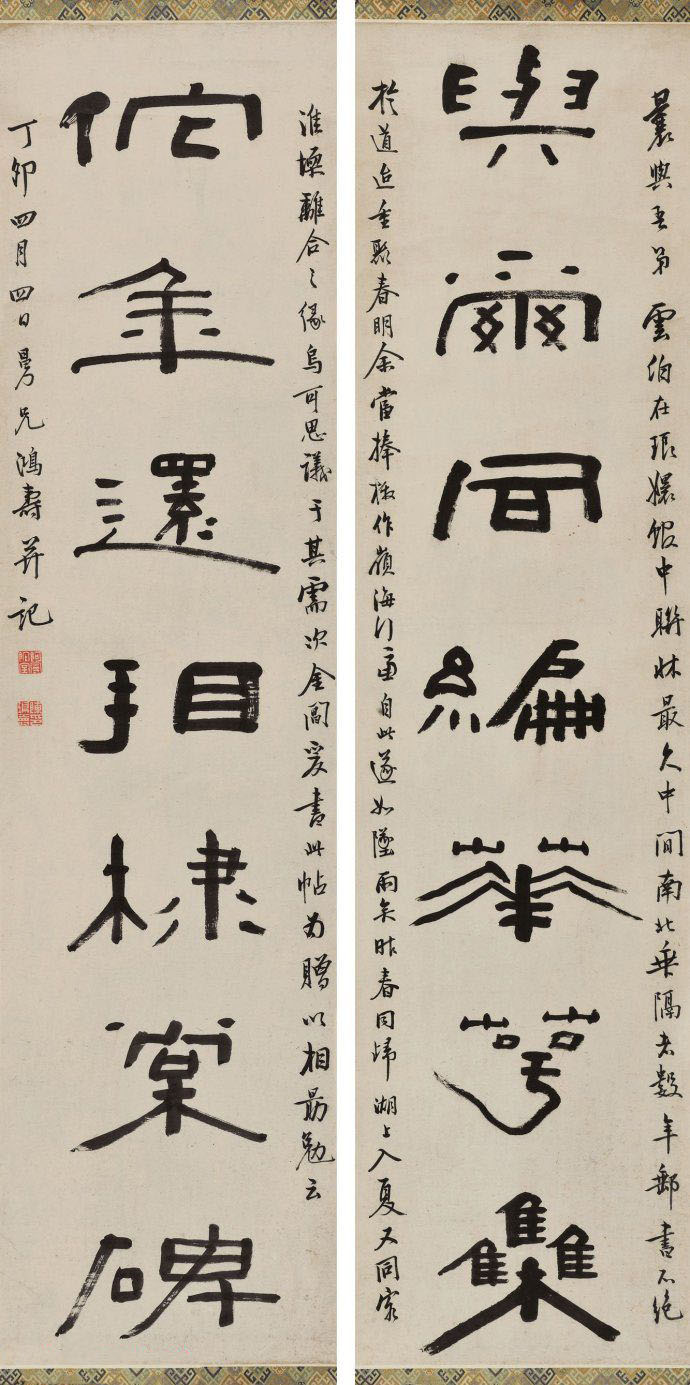 曩與吾弟雲伯在琅嬛館中聯牀最久中間南北乖隔者數年郵書不絕
與爾同編華萼集
於道迨重聚春明余當捧檄作嶺海行自此遂如墜雨矣昨春同歸湖上入夏又同客
淮壖離合之緣烏可思議于其需次金閶爰書此帖為贈以相勗勉云
佗年還相棣棠碑
丁卯四月四日曼兄鴻壽并記